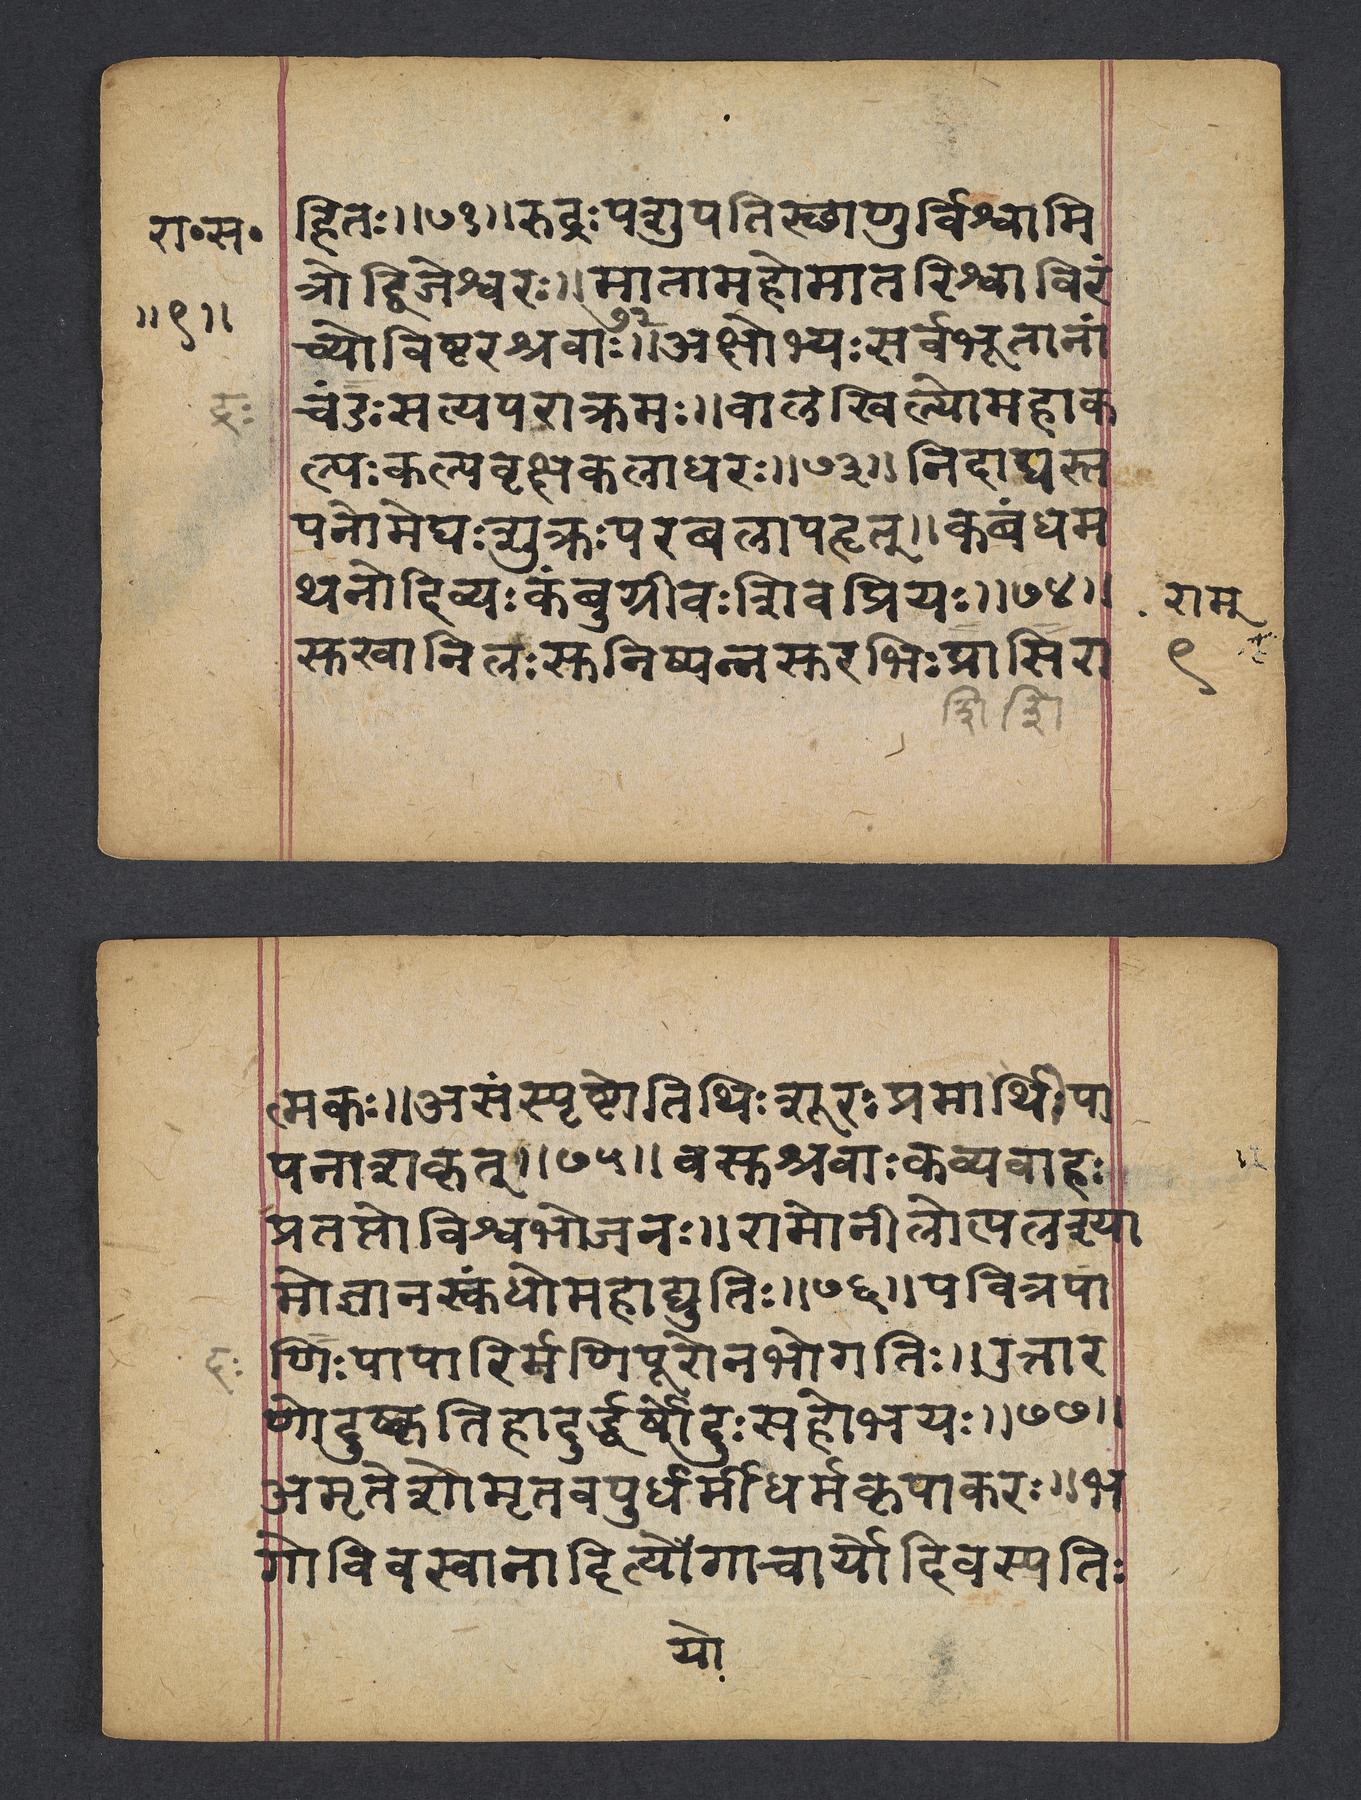 रा॰स॰
॥९॥
हितः॥७१॥रुद्रःपशुपतिस्छाणुर्विश्वामि
त्रोद्विजेश्वरः॥मातामहोमातरिश्वाविरं
७२
च्योविष्टरश्रवाः॥अक्षोभ्यःसर्वभूतानां
चंडःसत्यपराक्रमः॥वालखिल्योमहाक
ल्पःकल्पवृक्षकलाधरः॥७३॥निदाघस्त
पनोमेघःशुक्रःपरबलापहृत्॥कबंधम
थनोदिव्यःकंबुग्रीवःशिवप्रियः॥७४॥
स्तखानिलःस्तनिष्पन्नस्तरभिःप्रासिरा
राम
९
त्मकः॥असंस्पृष्टोतिथिःशूरःप्रमार्थिपा
पनाशकृत्॥७५॥वस्तश्रवाःकव्यवाहः
प्रतप्तोविश्वभोजनः॥रामोनीलोत्पलश्या
मोज्ञानस्कंधोमहाद्युतिः॥७६॥पवित्रपा
णिःपापारिर्मणिपूरोनभोगतिः॥उत्तार
णोदुष्कृतिहादुर्द्धर्षोदुःसहोभयः॥७७॥
अमृतेशोमृतवपुर्धर्मीधर्मकृपाकरः॥भ
गोविवस्वानादित्यौगाचार्योदिवस्पतिः
यो